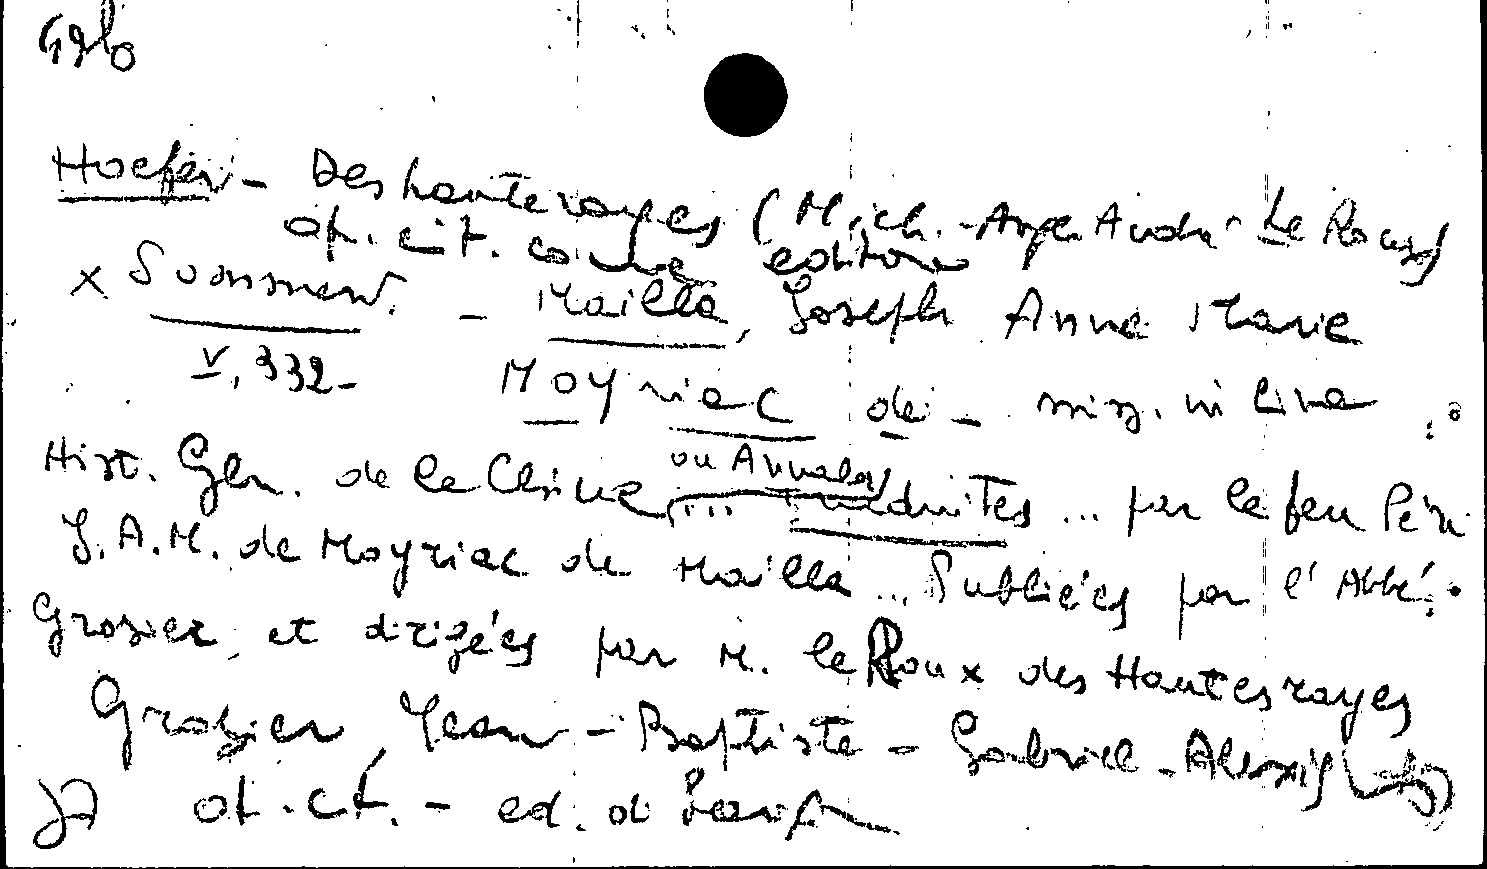 Hoefer - Deshauterayes (Mich.-Ange André Le Roux)
op. cit. come editore
x Sommerv. - Mailla, Joseph Anne Marie
V, 332 - Moyriac de - miss. in Cina :
Hist. Gén. de la Chine, ou Annales ... traduites ... par le feu Père
J. A. M. de Moyriac de Mailla ... Publiées par l'Abbé
Grosier, et dirigées par M. le Roux des Hautesrayes
Grosier, Jean-Baptiste-Gabriel-Alexis
op. cit. - ed. di Parigi